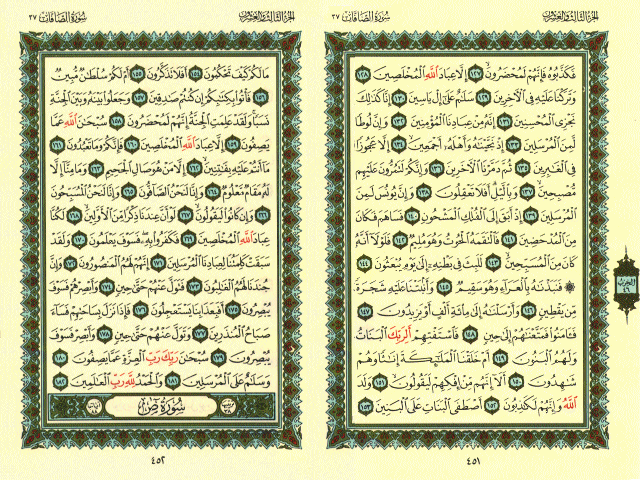 الجزء الثالث والعشرون سورة الصافات ٣٧
فَكَذَّبُوهُ فَإِنَّهُمْ لَمُحْضَرُونَ ١٢٧ إِلَّا عِبَادَ اللَّهِ الْمُخْلَصِينَ ١٢٨
وَتَرَكْنَا عَلَيْهِ فِي الْآخِرِينَ ١٢٩ سَلَامٌ عَلَىٰ إِلْ يَاسِينَ ١٣٠ إِنَّا كَذَٰلِكَ
نَجْزِي الْمُحْسِنِينَ ١٣١ إِنَّهُ مِنْ عِبَادِنَا الْمُؤْمِنِينَ ١٣٢ وَإِنَّ لُوطًا
لَّمِنَ الْمُرْسَلِينَ ١٣٣ إِذْ نَجَّيْنَاهُ وَأَهْلَهُ أَجْمَعِينَ ١٣٤ إِلَّا عَجُوزًا
فِي الْغَابِرِينَ ١٣٥ ثُمَّ دَمَّرْنَا الْآخَرِينَ ١٣٦ وَإِنَّكُمْ لَتَمُرُّونَ عَلَيْهِم
مُّصْبِحِينَ ١٣٧ وَبِاللَّيْلِ أَفَلَا تَعْقِلُونَ ١٣٨ وَإِنَّ يُونُسَ لَمِنَ
الْمُرْسَلِينَ ١٣٩ إِذْ أَبَقَ إِلَى الْفُلْكِ الْمَشْحُونِ ١٤٠ فَسَاهَمَ فَكَانَ
مِنَ الْمُدْحَضِينَ ١٤١ فَالْتَقَمَهُ الْحُوتُ وَهُوَ مُلِيمٌ ١٤٢ فَلَوْلَا أَنَّهُ
كَانَ مِنَ الْمُسَبِّحِينَ ١٤٣ لَلَبِثَ فِي بَطْنِهِ إِلَىٰ يَوْمِ يُبْعَثُونَ ١٤٤
۞ فَنَبَذْنَاهُ بِالْعَرَاءِ وَهُوَ سَقِيمٌ ١٤٥ وَأَنبَتْنَا عَلَيْهِ شَجَرَةً
مِّن يَقْطِينٍ ١٤٦ وَأَرْسَلْنَاهُ إِلَىٰ مِائَةِ أَلْفٍ أَوْ يَزِيدُونَ ١٤٧
فَآمَنُوا فَمَتَّعْنَاهُمْ إِلَىٰ حِينٍ ١٤٨ فَاسْتَفْتِهِمْ أَلِرَبِّكَ الْبَنَاتُ
وَلَهُمُ الْبَنُونَ ١٤٩ أَمْ خَلَقْنَا الْمَلَائِكَةَ إِنَاثًا وَهُمْ
شَاهِدُونَ ١٥٠ أَلَا إِنَّهُم مِّنْ إِفْكِهِمْ لَيَقُولُونَ ١٥١ وَلَدَ
اللَّهُ وَإِنَّهُمْ لَكَاذِبُونَ ١٥٢ أَصْطَفَى الْبَنَاتِ عَلَى الْبَنِينَ ١٥٣
٤٥١
الحزب
٤٦
الجزء الثالث والعشرون سورة الصافات ٣٧
مَا لَكُمْ كَيْفَ تَحْكُمُونَ ١٥٤ أَفَلَا تَذَكَّرُونَ ١٥٥ أَمْ لَكُمْ سُلْطَانٌ مُّبِينٌ
١٥٦ فَأْتُوا بِكِتَابِكُمْ إِن كُنتُمْ صَادِقِينَ ١٥٧ وَجَعَلُوا بَيْنَهُ وَبَيْنَ الْجِنَّةِ
نَسَبًا وَلَقَدْ عَلِمَتِ الْجِنَّةُ إِنَّهُمْ لَمُحْضَرُونَ ١٥٨ سُبْحَانَ اللَّهِ عَمَّا
يَصِفُونَ ١٥٩ إِلَّا عِبَادَ اللَّهِ الْمُخْلَصِينَ ١٦٠ فَإِنَّكُمْ وَمَا تَعْبُدُونَ ١٦١
مَا أَنتُمْ عَلَيْهِ بِفَاتِنِينَ ١٦٢ إِلَّا مَنْ هُوَ صَالِ الْجَحِيمِ ١٦٣ وَمَا مِنَّا إِلَّا
لَهُ مَقَامٌ مَّعْلُومٌ ١٦٤ وَإِنَّا لَنَحْنُ الصَّافُّونَ ١٦٥ وَإِنَّا لَنَحْنُ الْمُسَبِّحُونَ
١٦٦ وَإِن كَانُوا لَيَقُولُونَ ١٦٧ لَوْ أَنَّ عِندَنَا ذِكْرًا مِّنَ الْأَوَّلِينَ ١٦٨ لَكُنَّا
عِبَادَ اللَّهِ الْمُخْلَصِينَ ١٦٩ فَكَفَرُوا بِهِ فَسَوْفَ يَعْلَمُونَ ١٧٠ وَلَقَدْ
سَبَقَتْ كَلِمَتُنَا لِعِبَادِنَا الْمُرْسَلِينَ ١٧١ إِنَّهُمْ لَهُمُ الْمَنصُورُونَ ١٧٢ وَإِنَّ
جُندَنَا لَهُمُ الْغَالِبُونَ ١٧٣ فَتَوَلَّ عَنْهُمْ حَتَّىٰ حِينٍ ١٧٤ وَأَبْصِرْهُمْ فَسَوْفَ
يُبْصِرُونَ ١٧٥ أَفَبِعَذَابِنَا يَسْتَعْجِلُونَ ١٧٦ فَإِذَا نَزَلَ بِسَاحَتِهِمْ فَسَاءَ
صَبَاحُ الْمُنذَرِينَ ١٧٧ وَتَوَلَّ عَنْهُمْ حَتَّىٰ حِينٍ ١٧٨ وَأَبْصِرْ فَسَوْفَ
يُبْصِرُونَ ١٧٩ سُبْحَانَ رَبِّكَ رَبِّ الْعِزَّةِ عَمَّا يَصِفُونَ ١٨٠
وَسَلَامٌ عَلَى الْمُرْسَلِينَ ١٨١ وَالْحَمْدُ لِلَّهِ رَبِّ الْعَالَمِينَ ١٨٢
سُورَةُ ص
٤٥٢